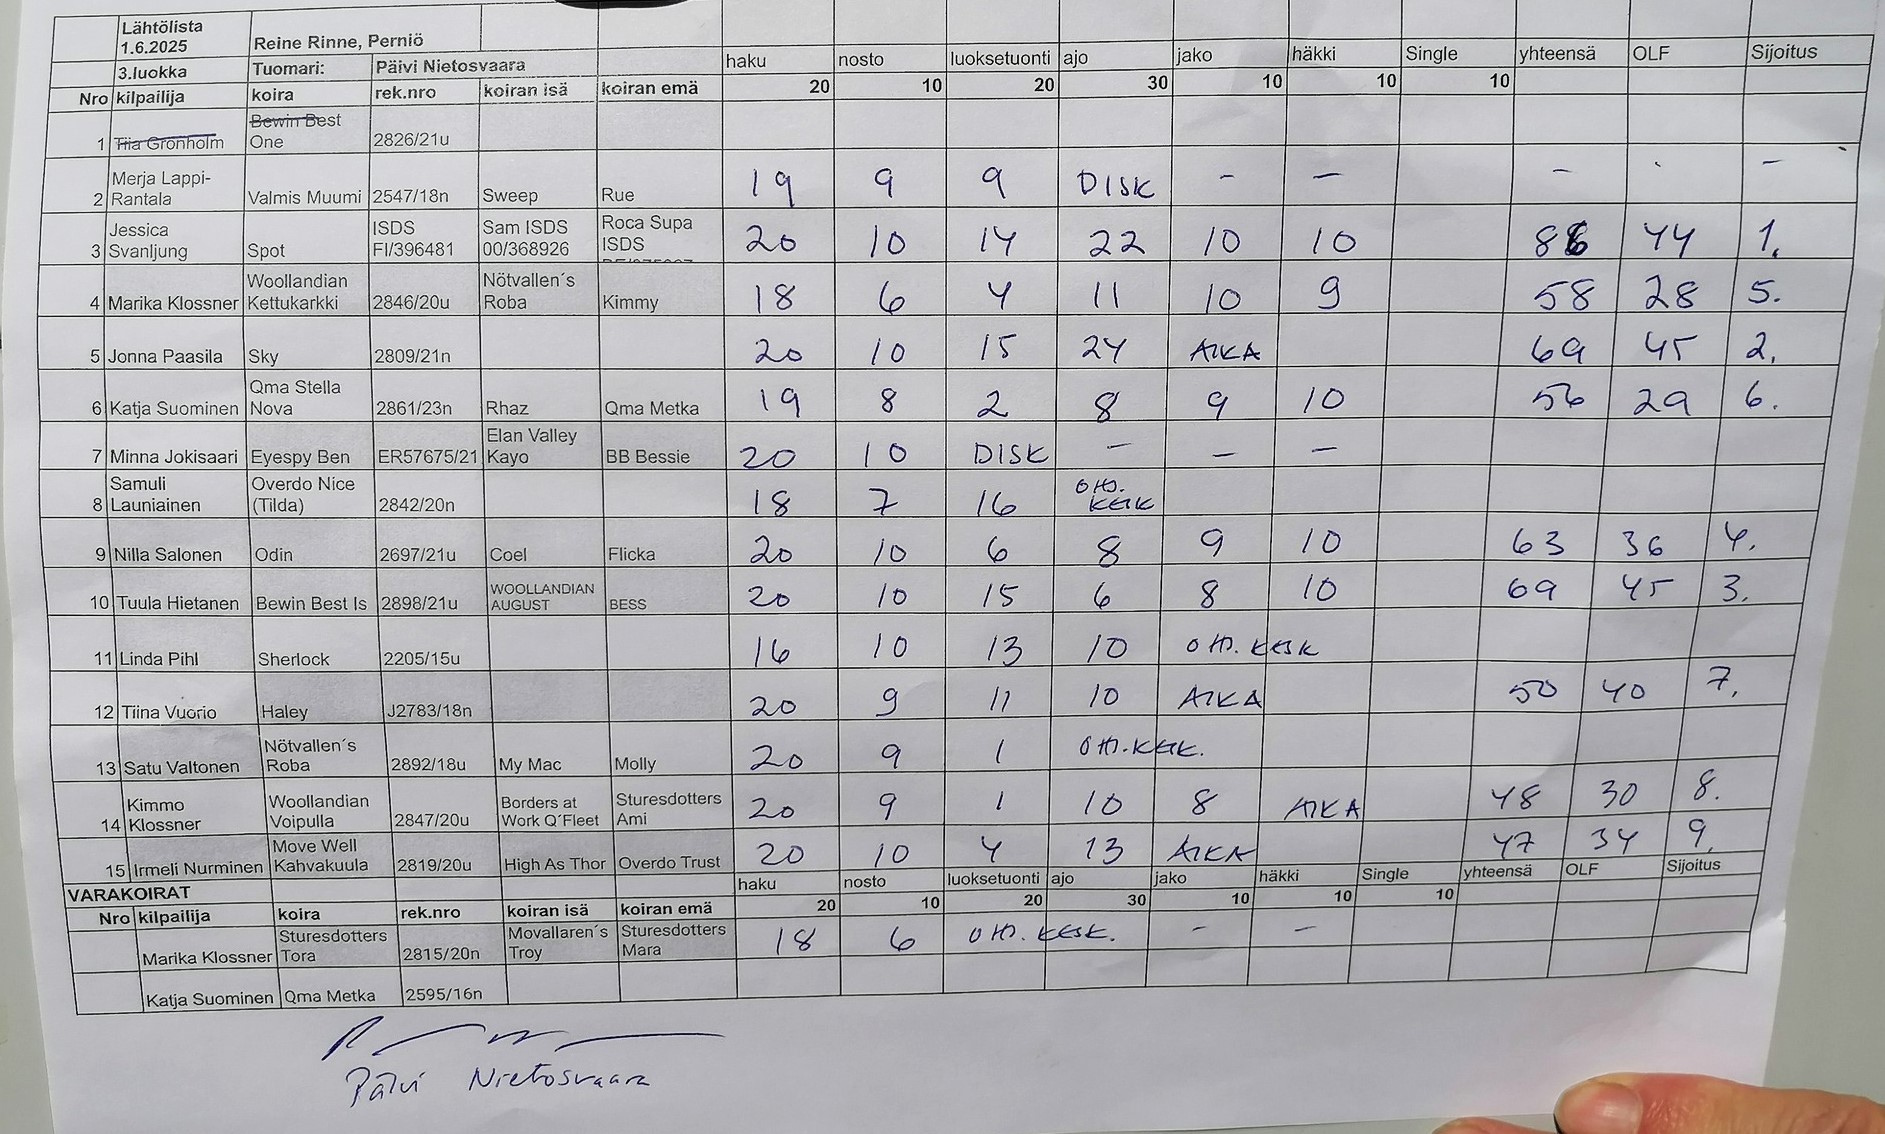 Lähtölista 1.6.2025 Reine Rinne, Perniö
3.luokka Tuomari: Päivi Nietosvaara haku nosto luoksetuonti ajo jako häkki Single yhteensä OLF Sijoitus
Nro kilpailija koira rek.nro koiran isä koiran emä 20 10 20 30 10 10 10
1 Tiia Grönholm Bewin Best One 2826/21u
2 Merja Lappi-Rantala Valmis Muumi 2547/18n Sweep Rue 19 9 9 DISK - - - -
3 Jessica Svanljung Spot ISDS FI/396481 Sam ISDS 00/368926 Roca Supa ISDS 20 10 14 22 10 10 86 44 1.
4 Marika Klossner Woollandian Kettukarkki 2846/20u Nötvallen´s Roba Kimmy 18 6 4 11 10 9 58 28 5.
5 Jonna Paasila Sky 2809/21n 20 10 15 24 AIKA 69 45 2.
6 Katja Suominen Qma Stella Nova 2861/23n Rhaz Qma Metka 19 8 2 8 9 10 56 29 6.
7 Minna Jokisaari Eyespy Ben ER57675/21 Elan Valley Kayo BB Bessie 20 10 DISK - - -
8 Samuli Launiainen Overdo Nice (Tilda) 2842/20n 18 7 16 OHJ. KESK
9 Nilla Salonen Odin 2697/21u Coel Flicka 20 10 6 8 9 10 63 36 4.
10 Tuula Hietanen Bewin Best Is 2898/21u WOOLLANDIAN AUGUST BESS 20 10 15 6 8 10 69 45 3.
11 Linda Pihl Sherlock 2205/15u 16 10 13 10 OHJ. KESK
12 Tiina Vuorio Haley J2783/18n 20 9 11 10 AIKA 50 40 7.
13 Satu Valtonen Nötvallen´s Roba 2892/18u My Mac Molly 20 9 1 OHJ. KESK.
14 Kimmo Klossner Woollandian Voipulla 2847/20u Borders at Work Q´Fleet Sturesdotters Ami 20 9 1 10 8 AIKA 48 30 8.
15 Irmeli Nurminen Move Well Kahvakuula 2819/20u High As Thor Overdo Trust 20 10 4 13 AIKA 47 34 9.
VARAKOIRAT haku nosto luoksetuonti ajo jako häkki Single yhteensä OLF Sijoitus
Nro kilpailija koira rek.nro koiran isä koiran emä 20 10 20 30 10 10 10
Marika Klossner Sturesdotters Tora 2815/20n Movallaren´s Troy Sturesdotters Mara 18 6 OHJ. KESK. - -
Katja Suominen Qma Metka 2595/16n
Päivi Nietosvaara